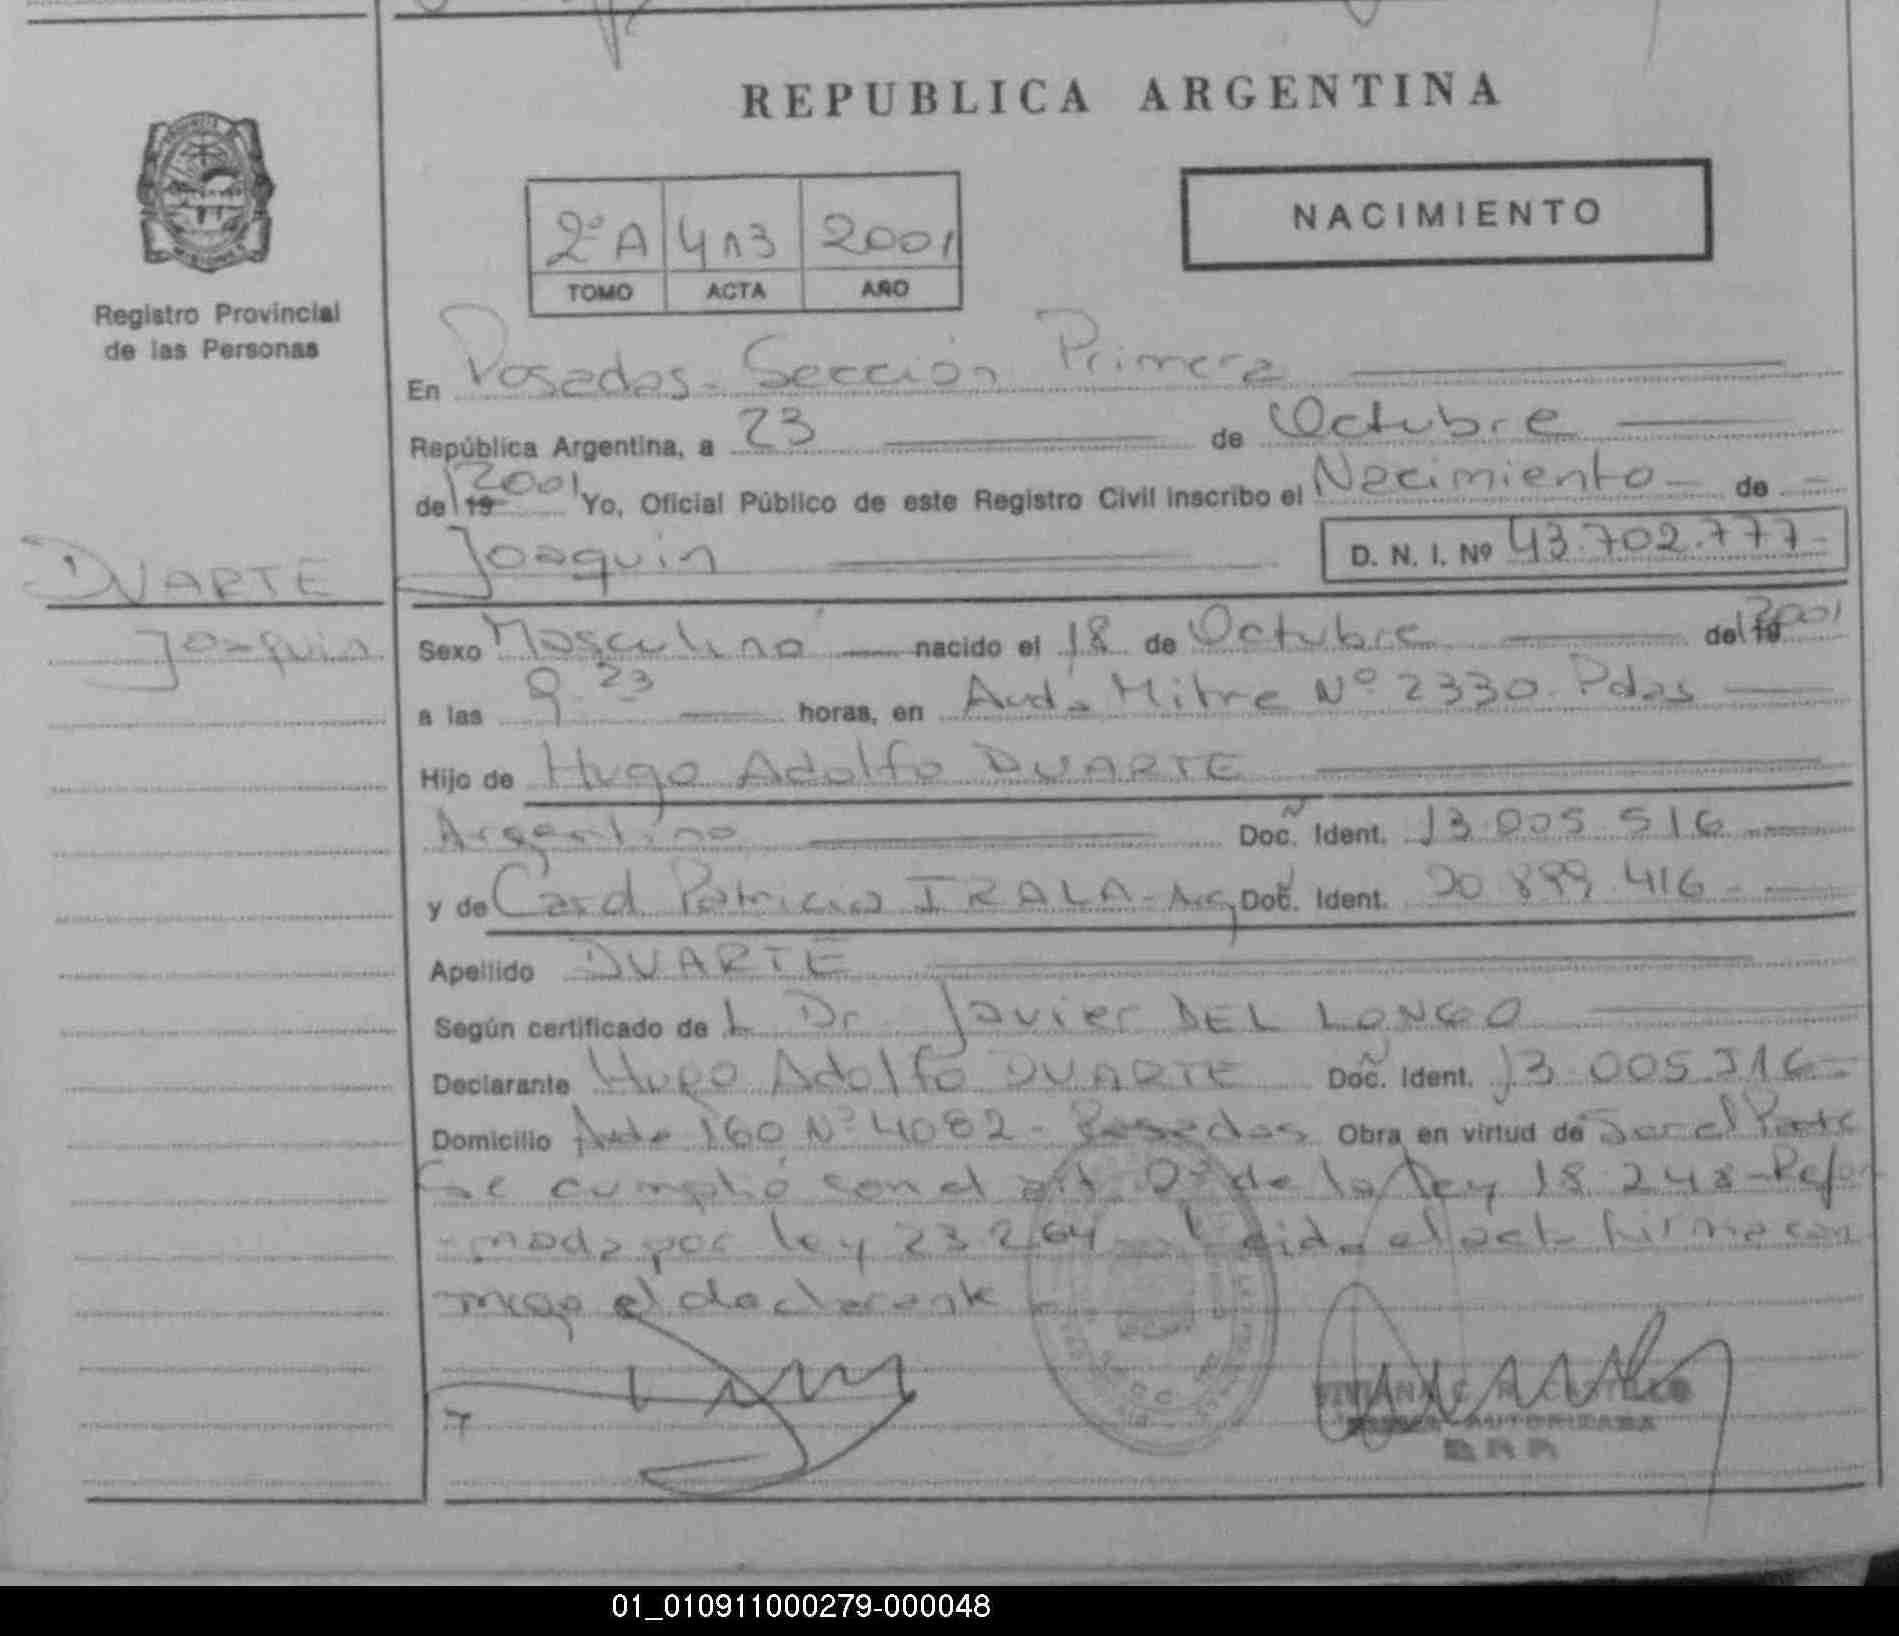 REPUBLICA ARGENTINA
NACIMIENTO
2º A 413 2001
TOMO ACTA AÑO
Registro Provincial
de las Personas
En Posadas - Sección Primera
República Argentina, a 23 de Octubre
de 19 2001 Yo, Oficial Público de este Registro Civil inscribo el Nacimiento de
Joaquin D. N. I. Nº 43.702.777
DUARTE
Joaquin
Sexo Masculino nacido el 18 de Octubre de 19 2001
a las 9.23 horas, en Avda Mitre Nº 2330. Pdas
Hijo de Hugo Adolfo DUARTE
Argentino Doc. Ident. 13.005.516
y de Carol Patricia IRALA - Arg Doc. Ident. 20.899.416
Apellido DUARTE
Según certificado de L Dr. Javier DEL LONGO
Declarante Hugo Adolfo DUARTE Doc. Ident. 13.005.516
Domicilio Avda 160 Nº 4082 - Posadas Obra en virtud de Ser el Padre
Se cumplió con el art. de la ley 18.248 - Refor
mada por ley 23.264 Leida el acta firma con
migo el declarante
VIVIANA CASTILLO
AUTORIZADA
01_010911000279-000048